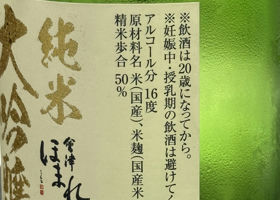 ※飲酒は20歳になってから。
※妊娠中・授乳期の飲酒は避けてく
アルコール分 16度
原材料名 米(国産)、米麹(国産米
精米歩合 50%
純米
大吟醸
會津
ほまれ